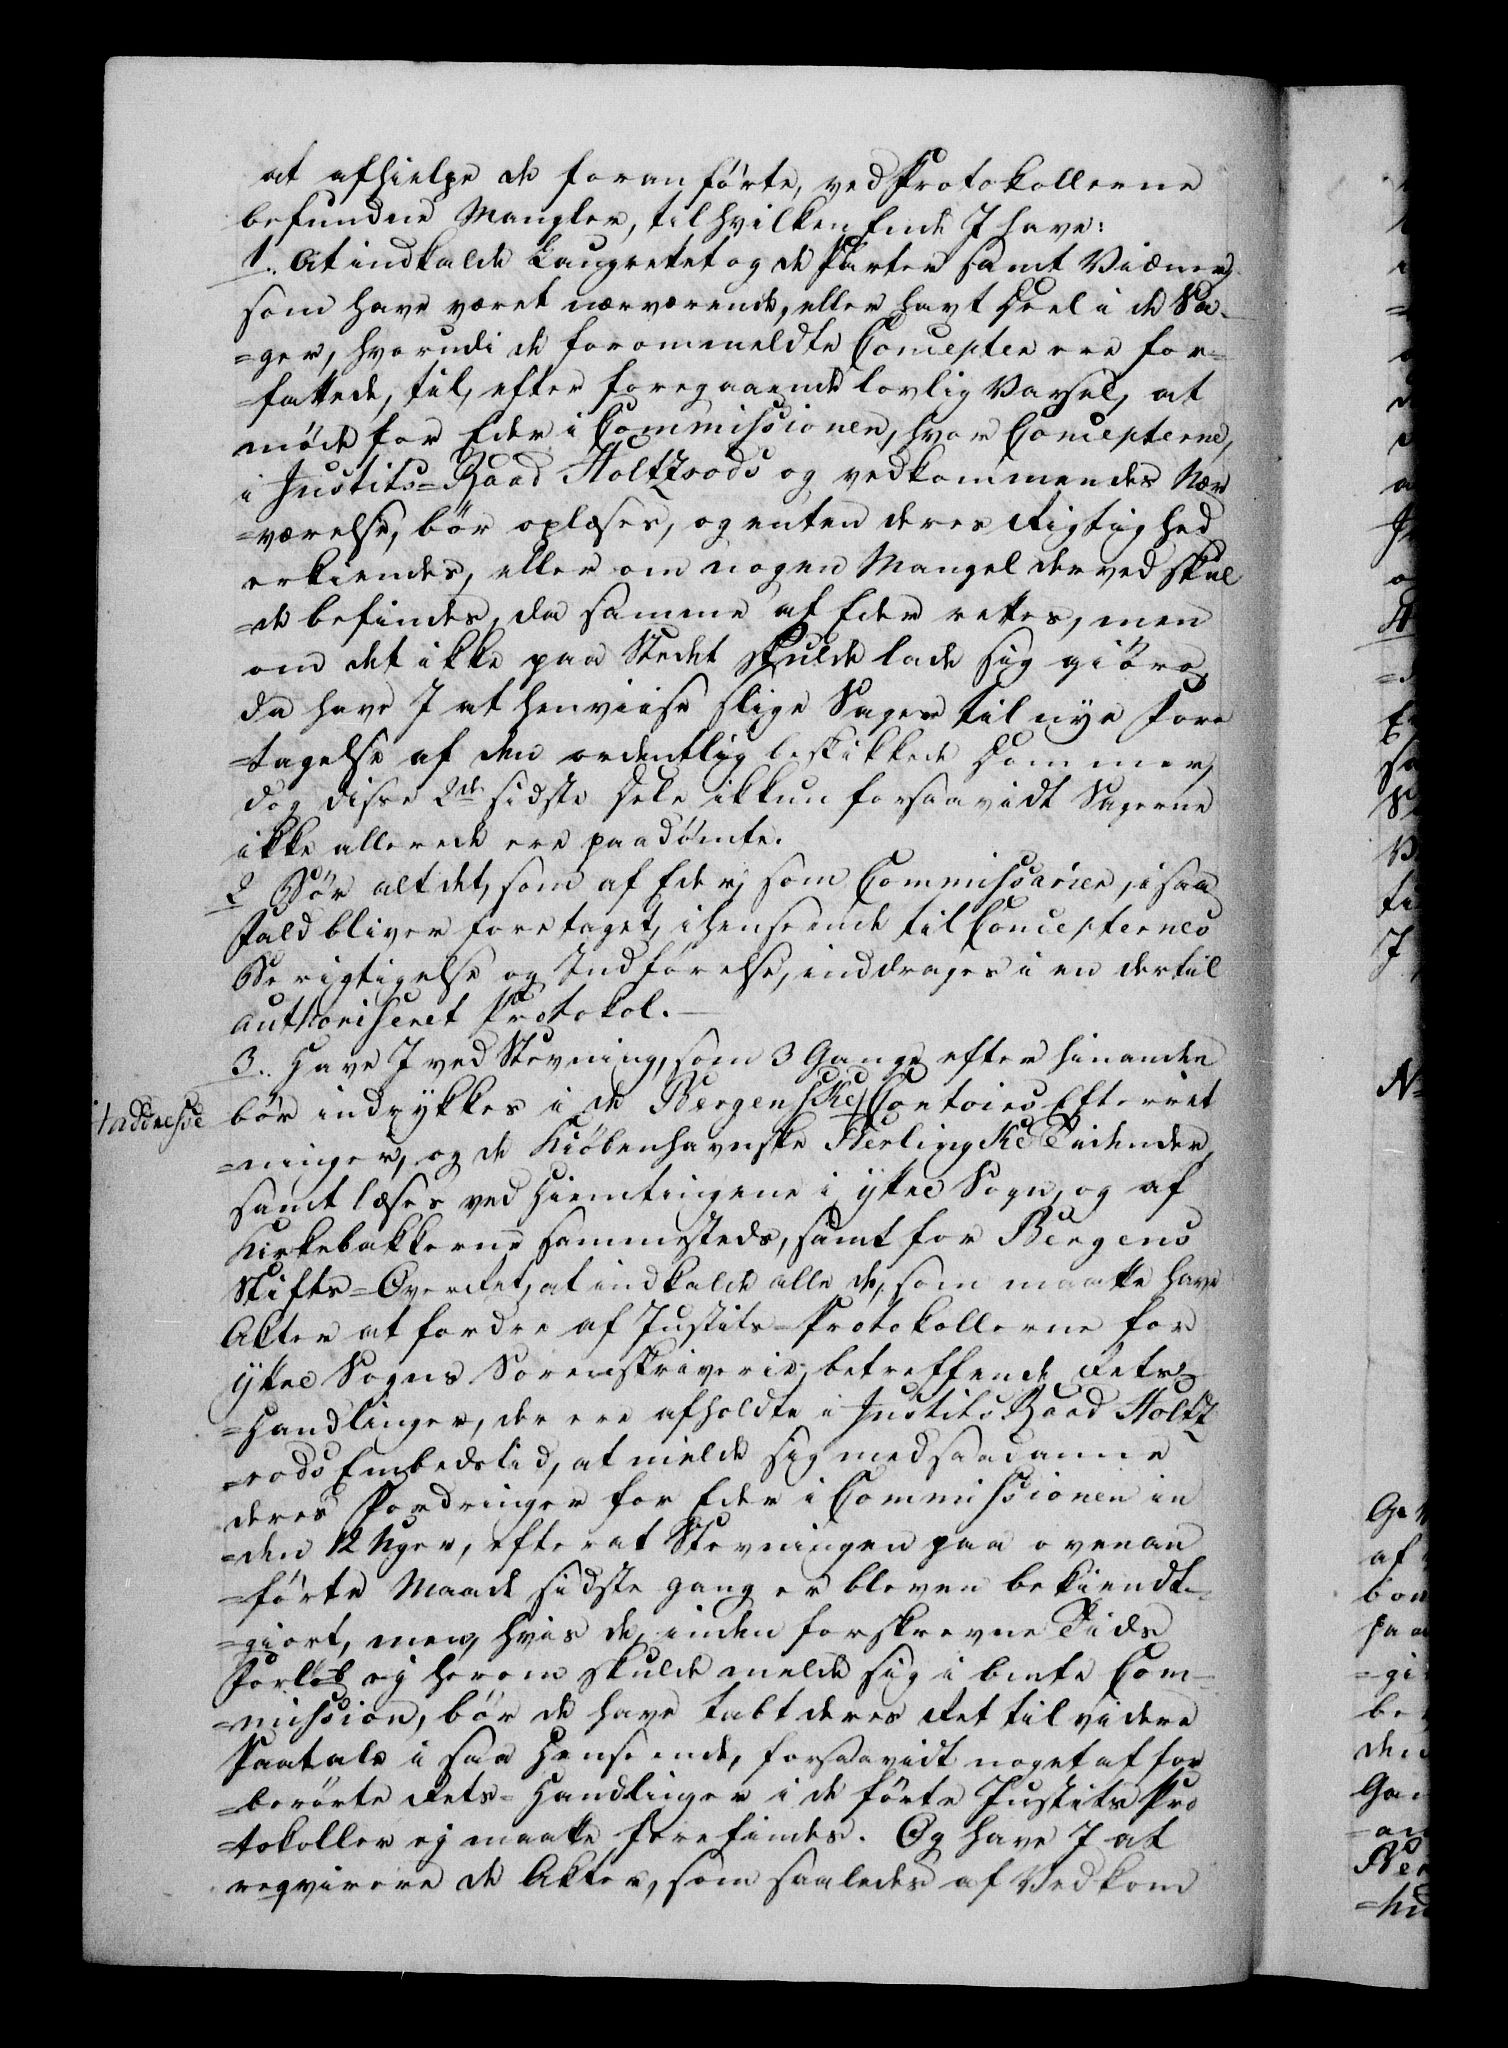 at afhielpe de foran förte, ved Protokollerne
befundne Mangler, til hvilken Ende I have:
1. At indkalde Laugretet og de Parter samt Vidner,
som have været nærværende, eller havt Deel i de Sa-
=ger, hvorudi de forommeldte Concepter ere for-
=fattede, til, efter foregaaende lovlig Varsel, at
möde for Eder i Commissionen, hvor Concepterne,
i Justits=Raad Holtzrods og vedkommendes Nær
=værelse, bör oplæses, og enten deres Rigtighed
erkiendes, eller om nogen Mangel derved skul
=de befindes, da samme af Eder rettes, men
om det ikke paa Stedet skulde lade sig giöre,
da have I at henviise slige Sager til nye Fore
=tagelse af den ordentlig beskikkede Dommer,
dog disse 2de sidste Dele ikkun forsaavidt Sagerne
ikke allerede ere paadömte.
2 Bör alt det, som af Eder, som Commissarier, i saa
Fald bliver foretaget, i henseende til Concepternes
Berigtigelse og Indförelse, inddrages i en dertil
authoriseret Protokol.
3. Have I ved Stevning, som 3 Gange efter hinanden
bör indrykkes i de Bergenske Contoirs Efterret
addresse
=ninger, og de Kiöbenhavnske Berlingske Tidender,
samt læses ved Hiemtingene i ytre Sogn, og af
Kirkebakkerne sammesteds, samt for Bergens
Stifts=Overret, at indkalde alle de, som maatte have
Akter at fordre af Justits=Protokollerne for
ytre Sogns Sorenskriverie, betreffende Rets
=Handlinger, der ere afholdte i Justits Raad Holtz
=rods Embedstid, at melde sig med saadanne
deres Fordringer for Eder i Commissionen in
=den 12 Uger, efter at Stevningen paa ovenan
=förte Maade sidste gang er bleven bekiendt=
=giort, men, hvis de, inden forskrevne Tids
Forlöb ej herom skulde melde sig i bemte Com-
=mission, bör de have tabt deres Ret til videre
Paatale i saa Henseende, forsaavidt noget af for
=berörte Rets=Handlinger i de förte Justits Pro
=tokoller ej maatte forefindes. Og have I at
reqvirere de Akter, som saaledes af Vedkom